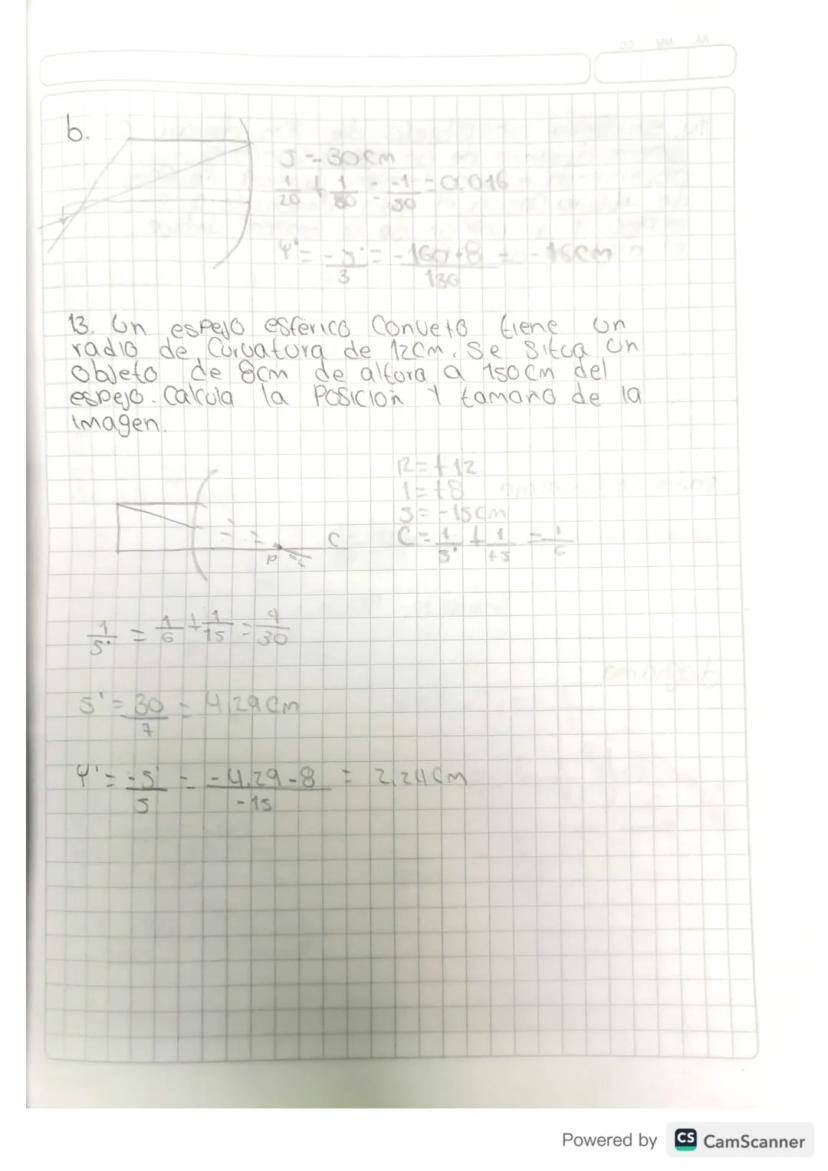 b.
S = -30cm
1/20 + 1/60 = -1/30 = 0.016
Y' = -S'/3 = -160+8/130 = -16cm
13. Un espejo esférico Conveto tiene un
radio de Curvatura de 12cm. Se Sitúa Un
Objeto de 8cm de altura a 150cm del
espejo. Calcula la Posición Y tamaño de la
imagen.
R = +12
1 = +8
S = -15cm
C = 1/S' + 1/+5 = 1/6
P
C
1/S' = 1/6 + 1/15 = 4/30
S' = 30/7 = 4,29cm
Y' = -S'/S = -4,29-8/-15 = 2,24cm
Powered by CS CamScanner